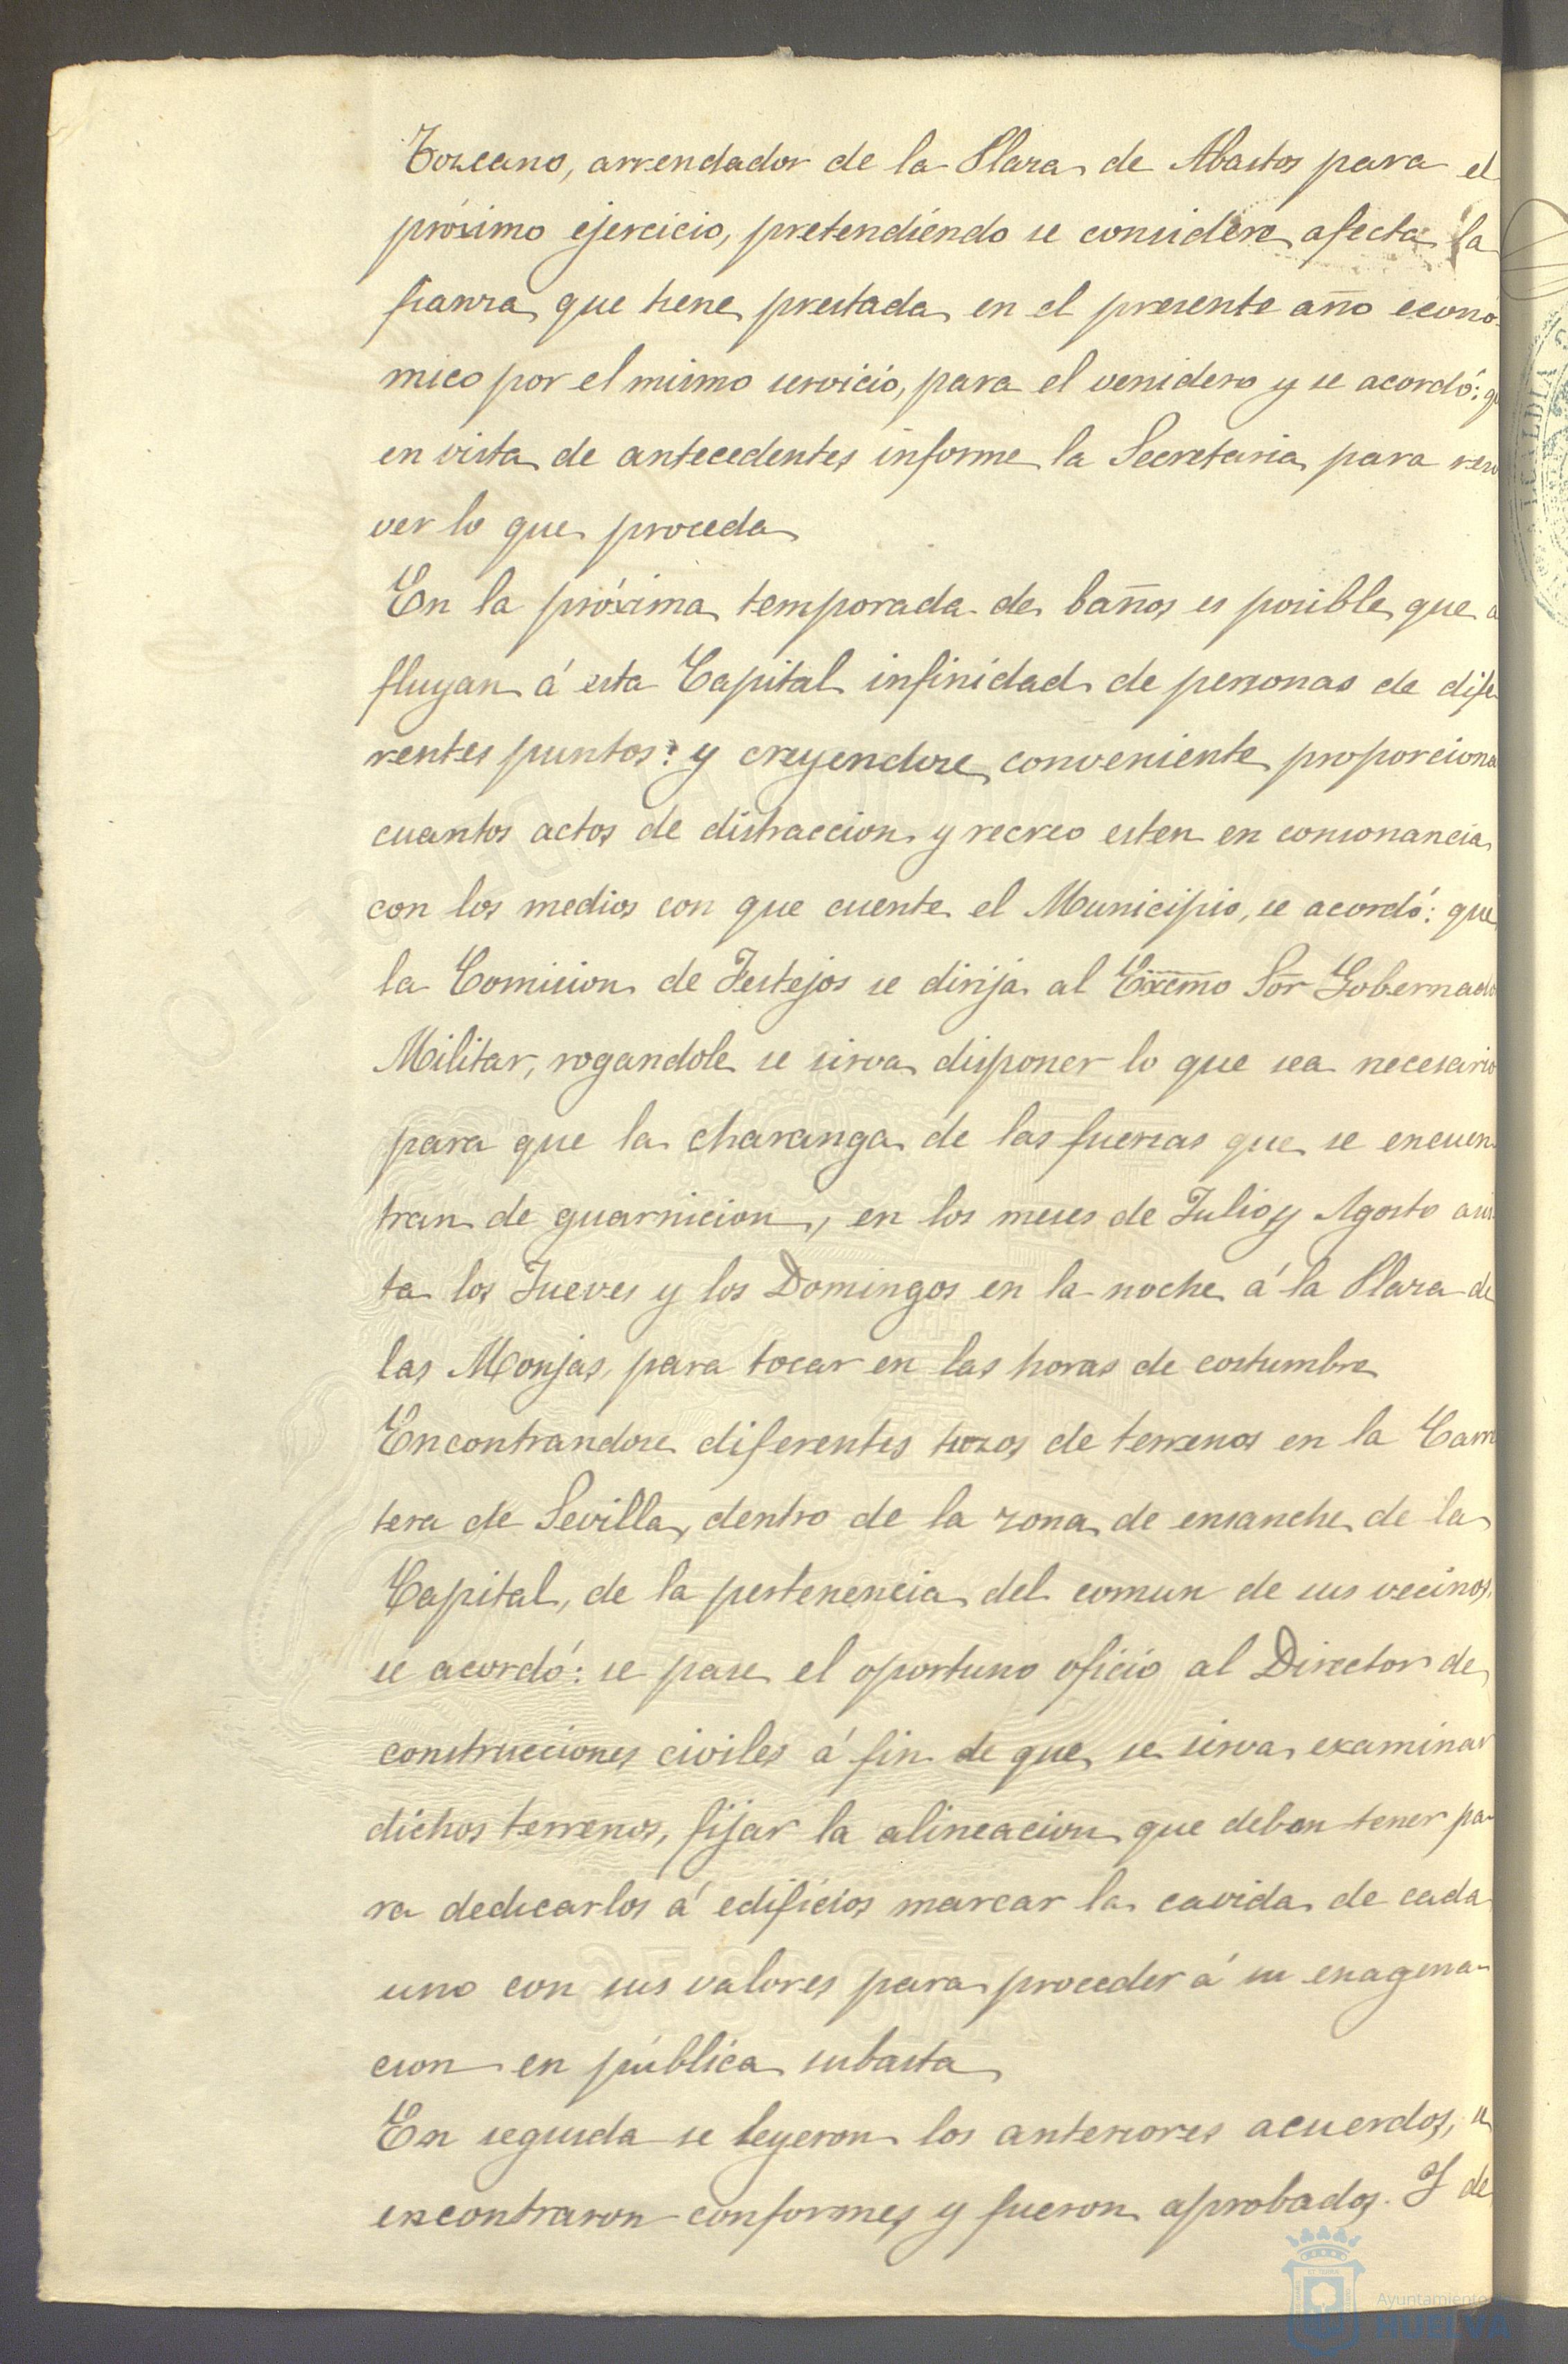 Tozcano, arrendador de la Plaza de Abastos para el
próximo ejercicio, pretendiendo se considere afecta la
fianza que tiene prestada en el presente año econó
mico por el mismo servicio, para el venidero y se acordó: qu
en vista de antecedentes informe la Secretaria para resol
ver lo que proceda
En la próxima temporada de baños es posible que a
fluyan á esta Capital infinidad de personas de dife
rentes puntos: y creyendose conveniente proporciona
cuantos actos de distraccion y recreo esten en consonancia
con los medios con que cuente el Municipio, se acordó: que
la Comision de Festejos se dirija al Excmo Sor Gobernado
Militar, rogandole se sirva disponer lo que sea necesario
para que la charanga de las fuerzas que se encuen
tran de guarnicion, en los meses de Julio y Agosto asis
ta los Jueves y los Domingos en la noche á la Plaza de
las Monjas, para tocar en las horas de costumbre
Encontrandose diferentes trozos de terrenos en la Carre
tera de Sevilla, dentro de la zona de ensanche de la
Capital, de la pertenencia del comun de sus vecinos,
se acordó: se pase el oportuno oficio al Director de
construcciones civiles á fin de que se sirva examinar
dichos terrenos, fijar la alineacion que deben tener pa-
ra dedicarlos á edificios marcar la cavida de cada
uno con sus valores para proceder á su enagena-
cion en pública subasta
En seguida se leyeron los anteriores acuerdos, se
encontraron conformes y fueron aprobados. Y de
ALCALDIA
Ayuntamiento
HUELVA